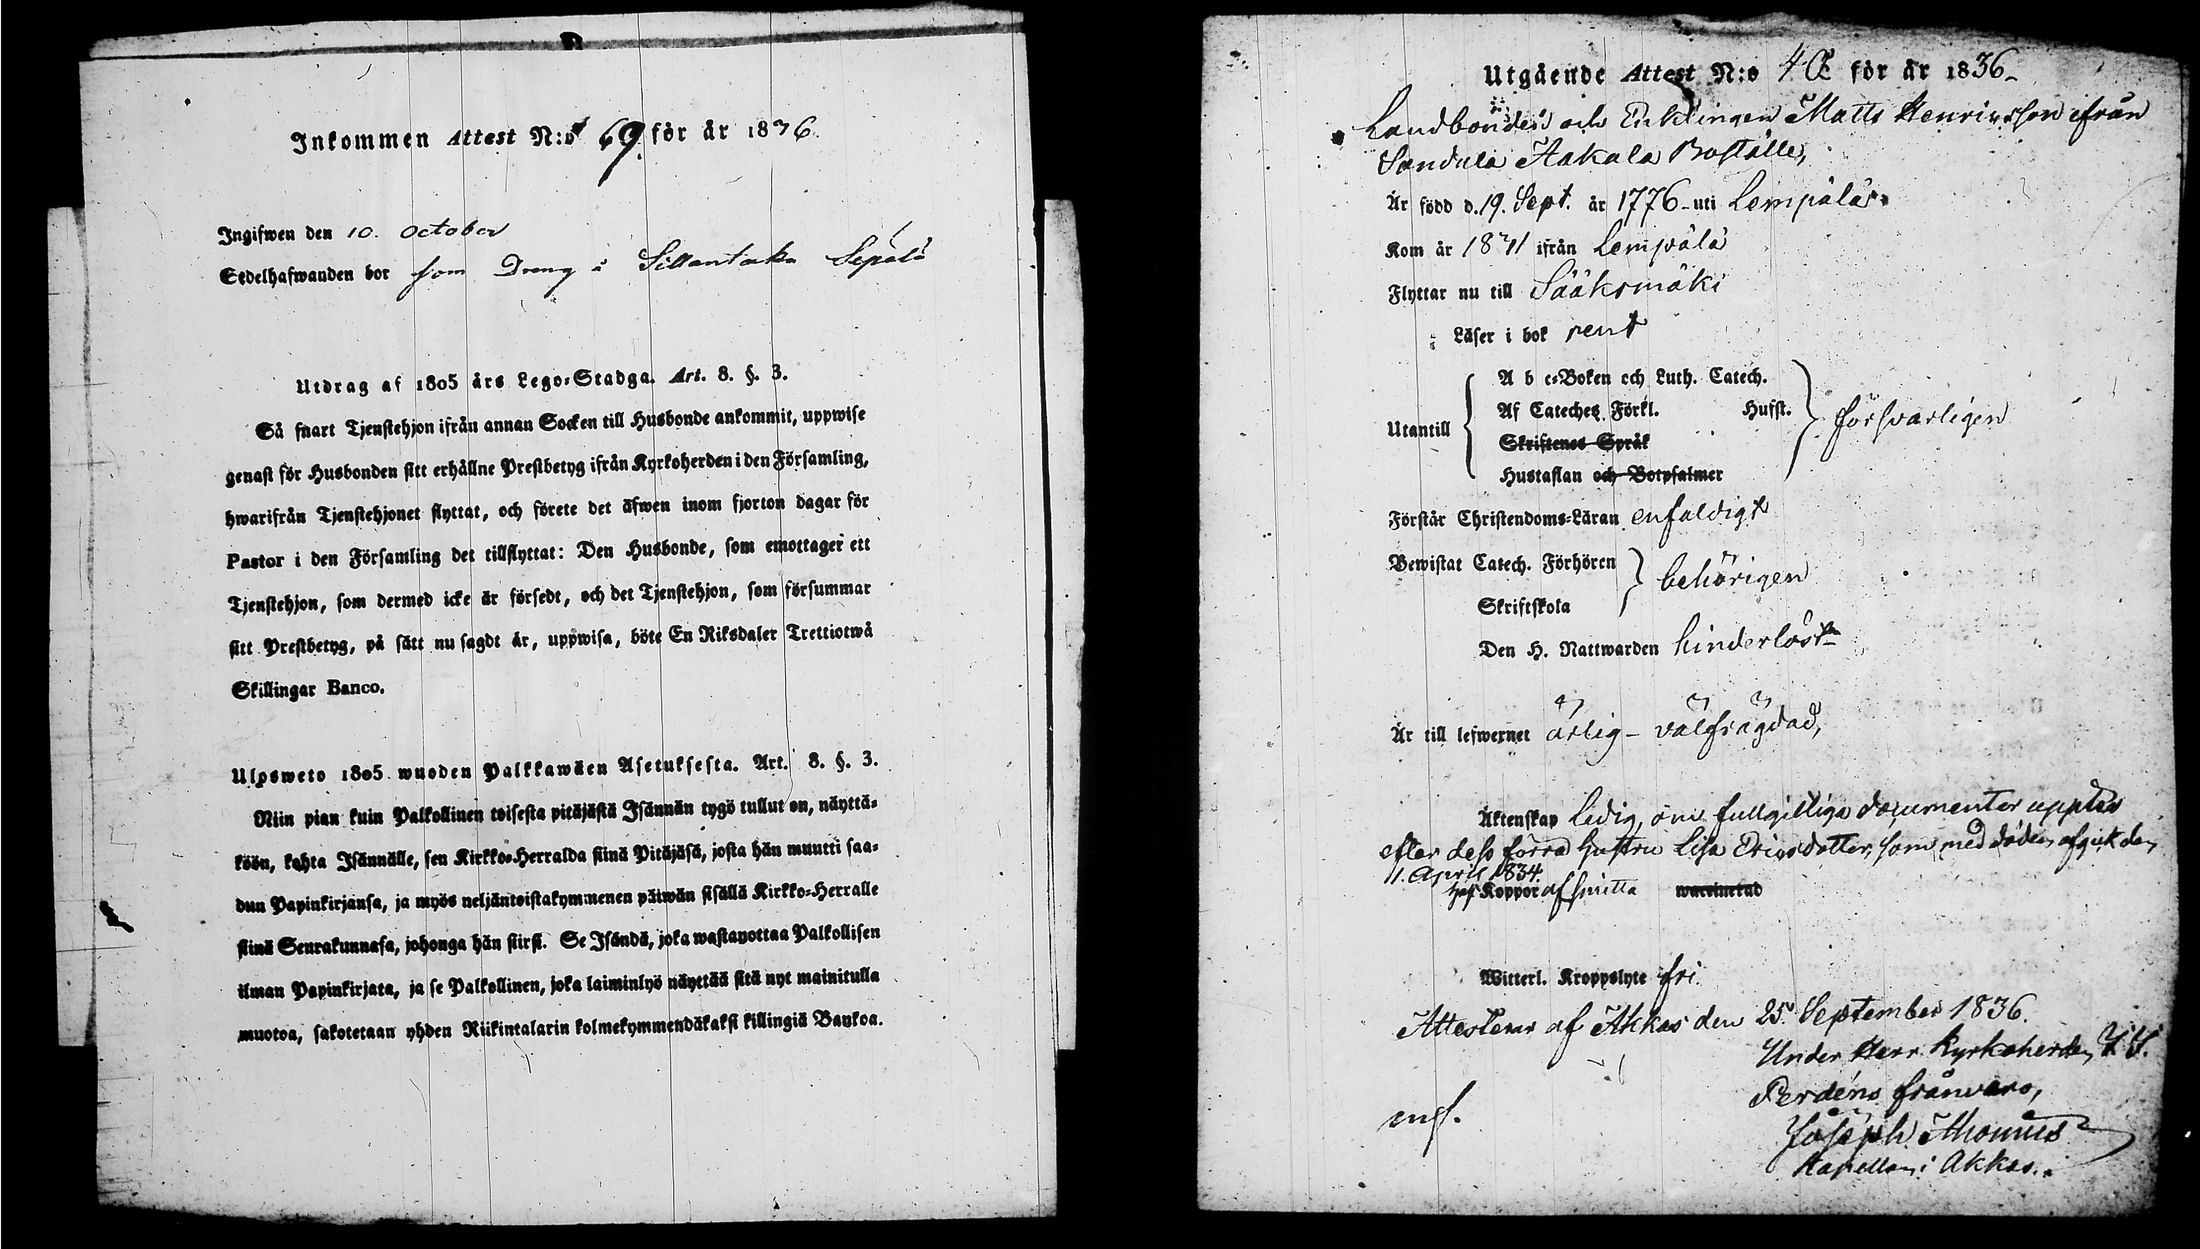 Inkommen Attest N:o 69 för år 1836.
Ingifwen den 10. October
Sedelhafwanden bor som Dreng å Sillantaka Sepälä
Utdrag af 1805 års Lego-Stadga. Art. 8. §. 3.
Så snart Tjenstehjon ifrån annan Socken till Husbonde ankommit, uppwise
genast för Husbonden sitt erhållne Prestbetyg ifrån Kyrkoherden i den Församling,
hwarifrån Tjenstehjonet flyttat, och förete det äfwen inom fjorton dagar för
Pastor i den Församling det tillflyttat: Den Husbonde, som emottager ett
Tjenstehjon, som dermed icke är försedt, och det Tjenstehjon, som försummar
sitt Prestbetyg, på sätt nu sagdt är, uppwisa, böte En Riksdaler Trettiotwå
Skillingar Banco.
Ulosweto 1805 wuoden Palkkawäen Asetuksesta. Art. 8. §. 3.
Niin pian kuin Palkollinen toisesta pitäjästä Isännän tygö tullut on, näyttä-
köön, kohta Isännälle, sen Kirkko-Herralda siinä Pitäjäsä, josta hän muutti saa-
dun Papinkirjansa, ja myös neljäntoistakymmenen päiwän sisällä Kirkko-Herralle
siinä Seurakunnasa, johonga hän siirsi. Se Isändä, joka wastaanottaa Palkollisen
ilman Papinkirjata, ja se Palkollinen, joka laiminlyö näyttää sitä nyt mainitulla
muotoa, sakotetaan yhden Riikintalarin kolmekymmendäkaksi killingiä Bankoa.
Utgående Attest N:o 4 för år 1836
Landbonden och Enklingen Matts Henricsson ifrån
Sondula Aakala Boställe,
Är född d. 19. Sept. år 1776 uti Lempälä
Kom år 1831 ifrån Lempälä
Flyttar nu till Sääksmäki
Läser i bok rent
A b c-Boken och Luth. Catech.
Af Cateches Förkl. Hufst.
Utantill försvarligen
Skriftenes Språk
Hustaflan och Botpsalmer
Förstår Christendoms-Läran enfaldigt
Bewistat Catech. Förhören behörigen
Skriftskola
Den H. Nattwarden hinderlöst
Är till lefwernet ärlig - välfrägdad,
Äktenskap Ledig, om fullgilltiga documenter uppter
efter dess förra hustru Lisa Ericsdotter, som med döden afgick den
1. April 1834.
Haft Koppor af Smitta waccinerad
Witterl. Kroppslyte fri.
Attesteras af Akkas den 25. September 1836.
Under Herr Kyrkoherden
Perdéns frånvaro,
mpr.
Joseph
Kapellan i Akkas.